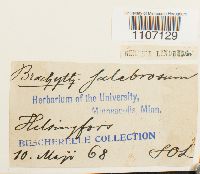 1107129
Brachyth. salebrosum
Herbarium of the University,
Minneapolis, Minn.
Helsingfors
BESCHERELLE COLLECTION
10. Maji 68 SOL